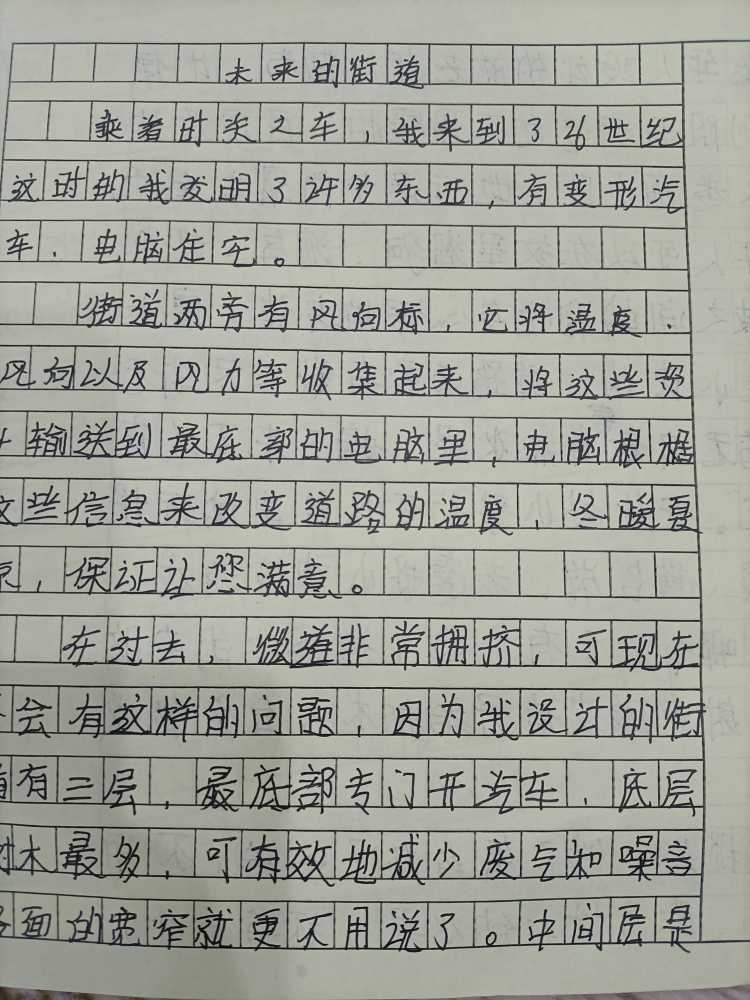 未来的街道
乘着时光之车，我来到了26世纪
这时的我发明了许多东西，有变形汽
车、电脑住宅。
街道两旁有风向标，它将温度、
风向以及风力等收集起来，将这些资
输送到最底部的电脑里，电脑根据
这些信息来改变道路的温度，冬暖夏
凉，保证让您满意。
在过去，街道非常拥挤，可现在
会有这样的问题，因为我设计的街
道有三层，最底部专门开汽车，底层
树木最多，可有效地减少废气和噪音
路面的宽窄就更不用说了。中间层是